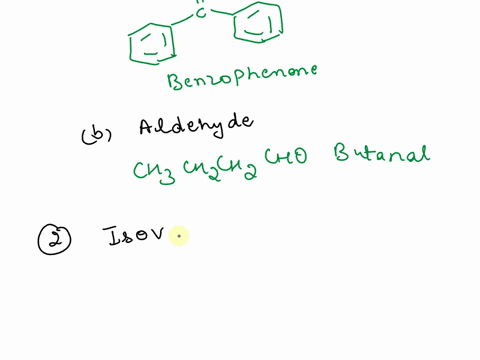 C
Benzophenone
(b) Aldehyde
CH3 CH2CH2 CHO Butanal
2 Isov